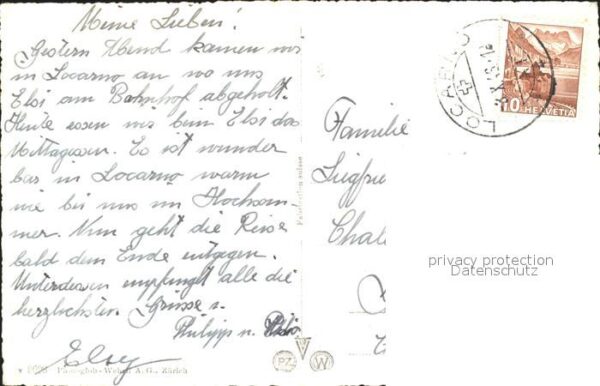 Meine Lieben!
Gestern Abend kamen wir
in Locarno an wo uns
Elsi am Bahnhof abgeholt.
Heute essen wir beim Elsi das
Mittagessen. Es ist wunder
bar in Locarno warm
wie bei uns im Hochsom-
mer. Nun geht die Reise
bald dem Ende entgegen.
Unterdessen empfangt alle die
herzlichsten Grüsse v.
Philipp u.
Elsy
Photoglob-Wehrli A. G., Zürich
Fabrication suisse
PZ
W
LOCARNO
10 HELVETIA
Familie
Siegfrie
Chal
privacy protection
Datenschutz